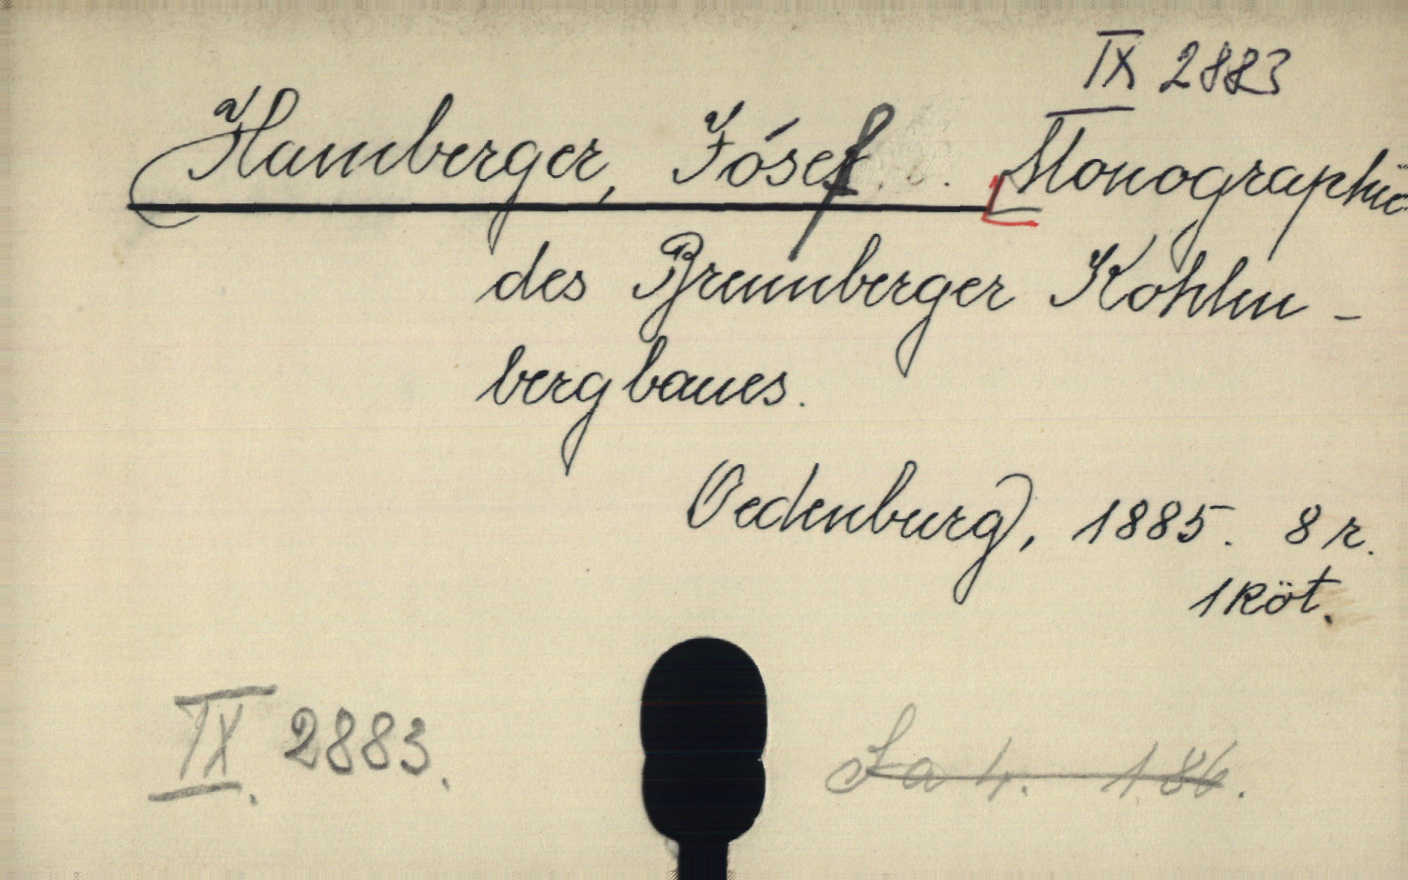 IX 2883
Hamberger, József. Monographie
des Brennberger Kohlen-
bergbaues.
Oedenburg, 1885. 8 r.
1 köt.
IX. 2883.
La 4. 186.